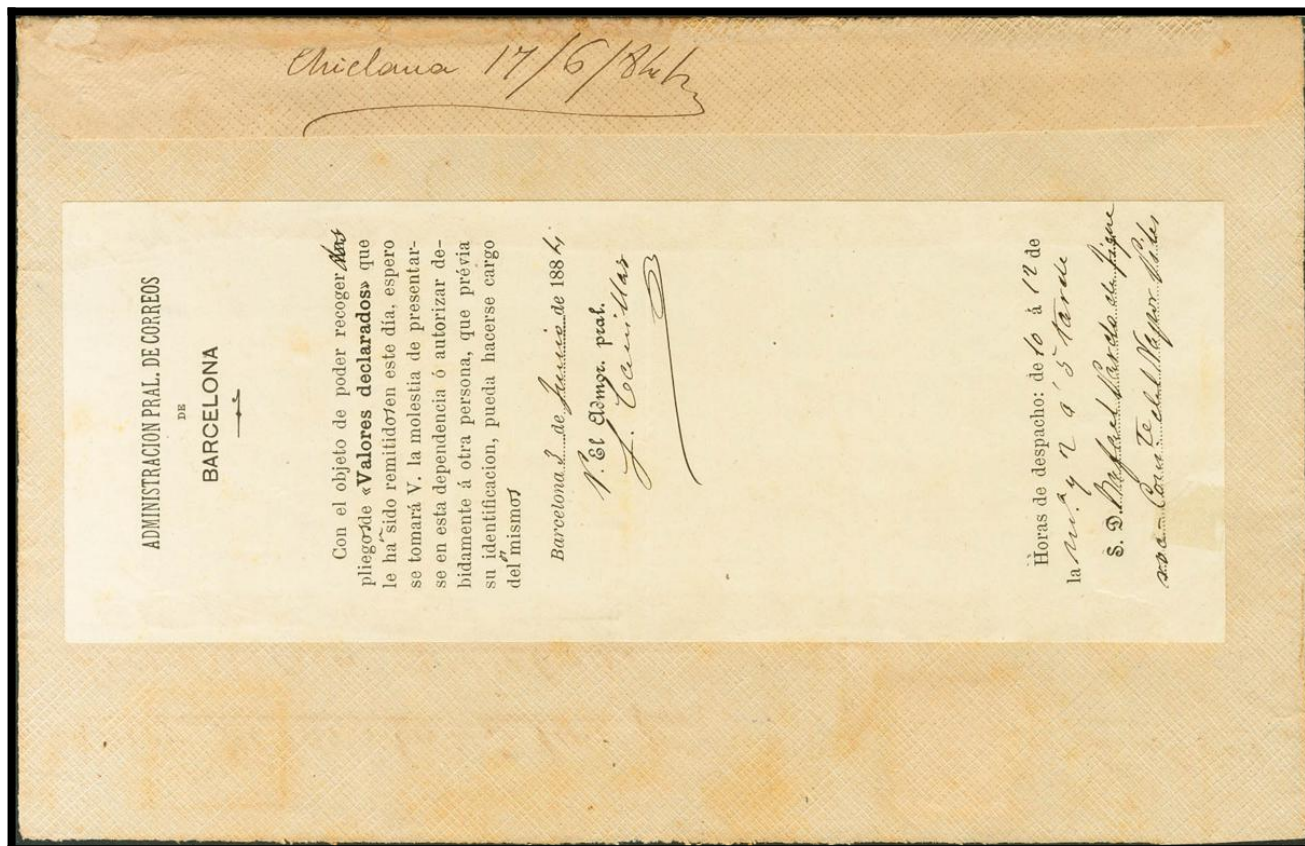 Chiclana 17/6/84
ADMINISTRACION PRAL. DE CORREOS
DE
BARCELONA
Con el objeto de poder recoger dos
pliegos de «Valores declarados» que
le han sido remitidos en este día, espero
se tomará V. la molestia de presentar-
se en esta dependencia ó autorizar de-
bidamente á otra persona, que prévia
su identificacion, pueda hacerse cargo
del mismos
Barcelona 3 de Junio de 1884
P. El Admor. pral.
Horas de despacho: de 10 á 12 de
la m.ª y 2 a 5 tarde
S. D. Rafael Pardo de Figue
roa Com.te del Vapor